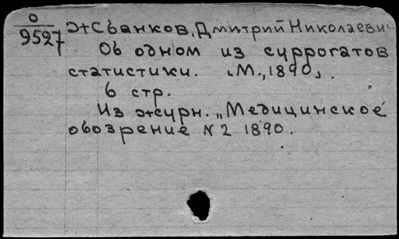 О
9527
Жбанков, Дмитрий Николаевич
Об одном из суррогатов
статистики. „М., 1890„.
6 стр.
Из журн. „Медицинское
обозрение N 2 1890.